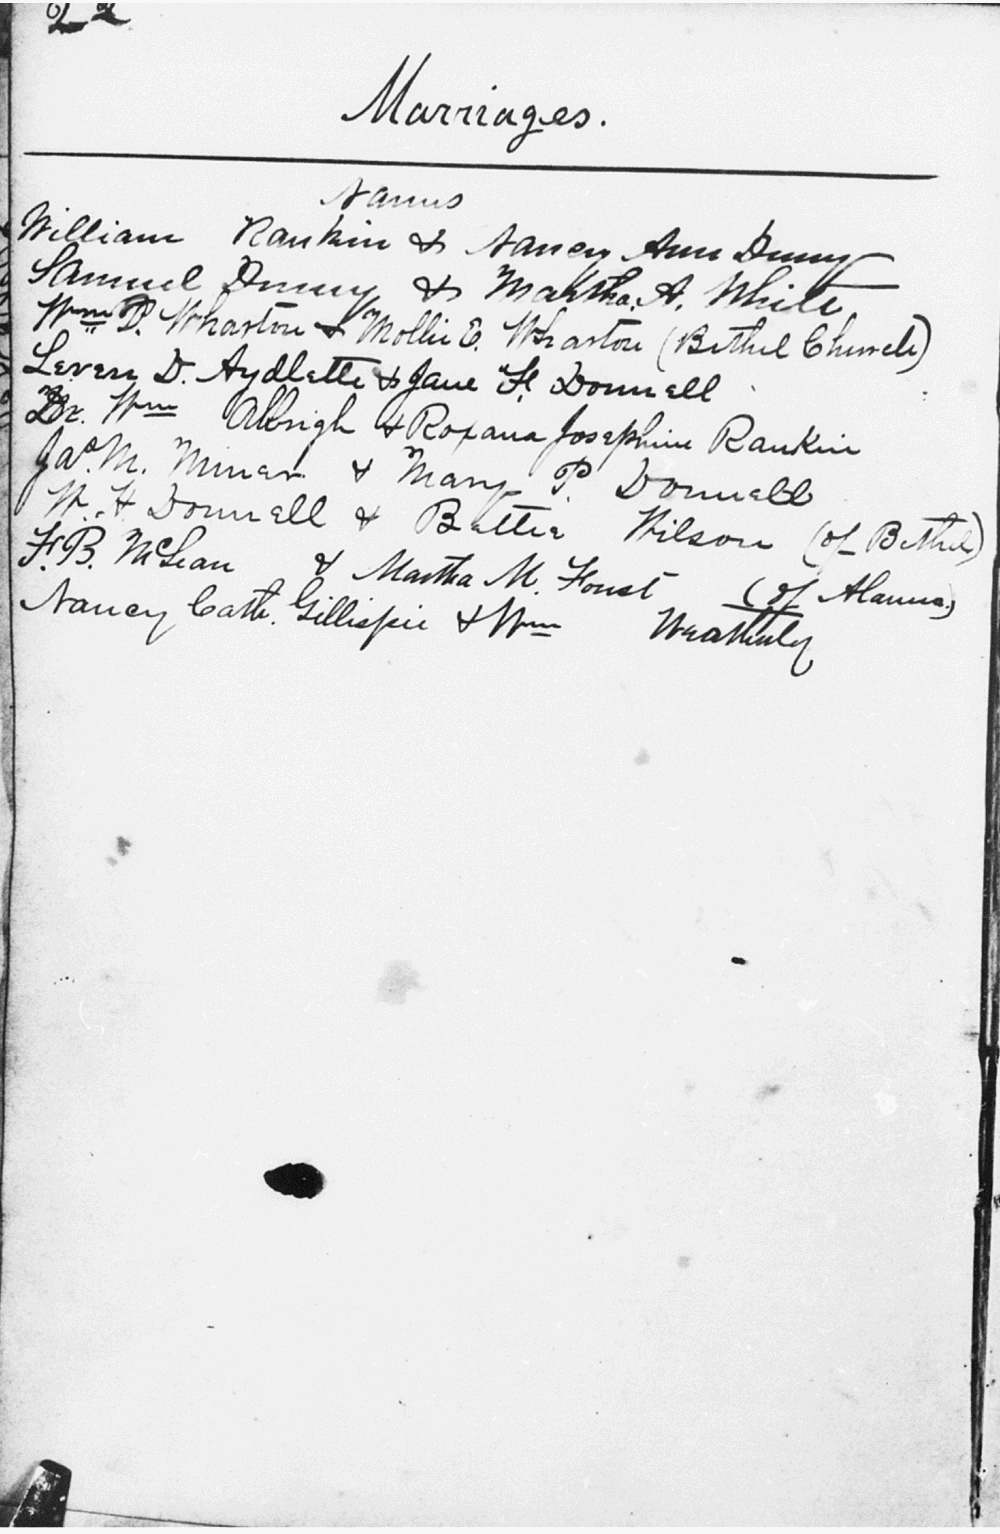 Marriages.
Names
William Rankin & Nancy Ann Denny
Samuel Denny & Martha. A. White
Wm. D. Wharton & Mollie E. Wharton (Bethel Church)
Leven D. Aydlette & Jane F. Donnell
Dr. Wm Albrigh & Roxana Josephine Rankin
Jas. M. Miner & Mary P. Donnell
W. H Donnell & Bettie Wilson (of Bethel)
F. B. McLean & Martha M. Foust (of Alamnc.)
Nancy Cath. Gillispie & Wm Weatherly